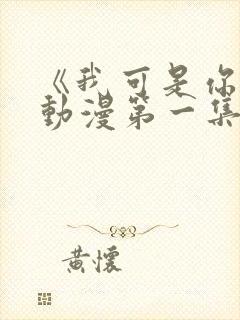 《我可是你
動漫第一集
黃懷